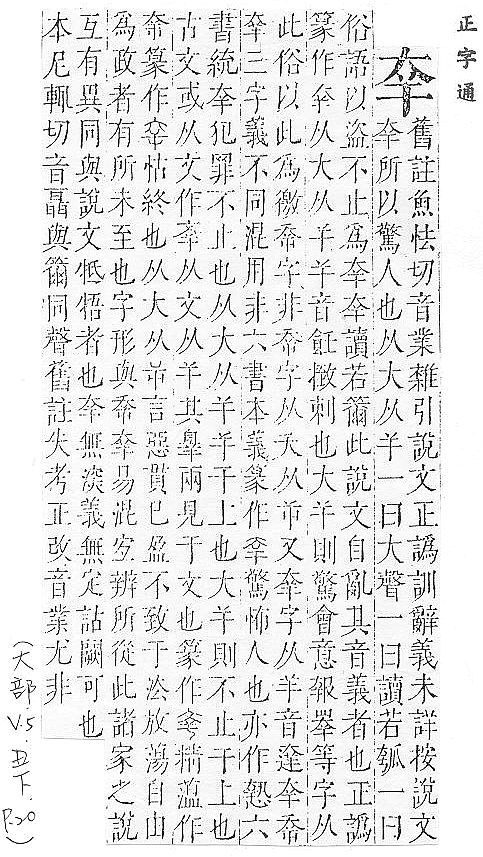 正字通
㚔
舊註魚怯切音業雜引說文正譌訓辭義未詳按說文
㚔所以驚人也从大从𢆉一曰大聲一曰讀若瓠一曰
俗語以盜不止爲㚔㚔讀若籋此說文自亂其音義者也正譌
篆作㚔从大从𢆉𢆉音飪撖刺也大𢆉則驚會意報睪等字从
此俗以此爲徼㚔字非㚔字从夭从屰又㚔字从羊音逹㚔㚔
㚔三字義不同混用非六書本義篆作㚔驚怖人也亦作慹六
書統㚔犯罪不止也从大从𢆉𢆉干上也大𢆉則不止干上也
古文或从文作㚔从文从𢆉其辠兩見于文也篆作㚔精薀作
㚔篆作㚔怙終也从大从屰言惡貫已盈不致于法放蕩自由
爲政者有所未至也字形與㚔㚔易混宐辨所從此諸家之說
互有異同與說文牴牾者也㚔無深義無定詁闕可也
本尼輒切音聶與籋同聲舊註失考正改音業尤非
(大部 V.5.丑下.P20)